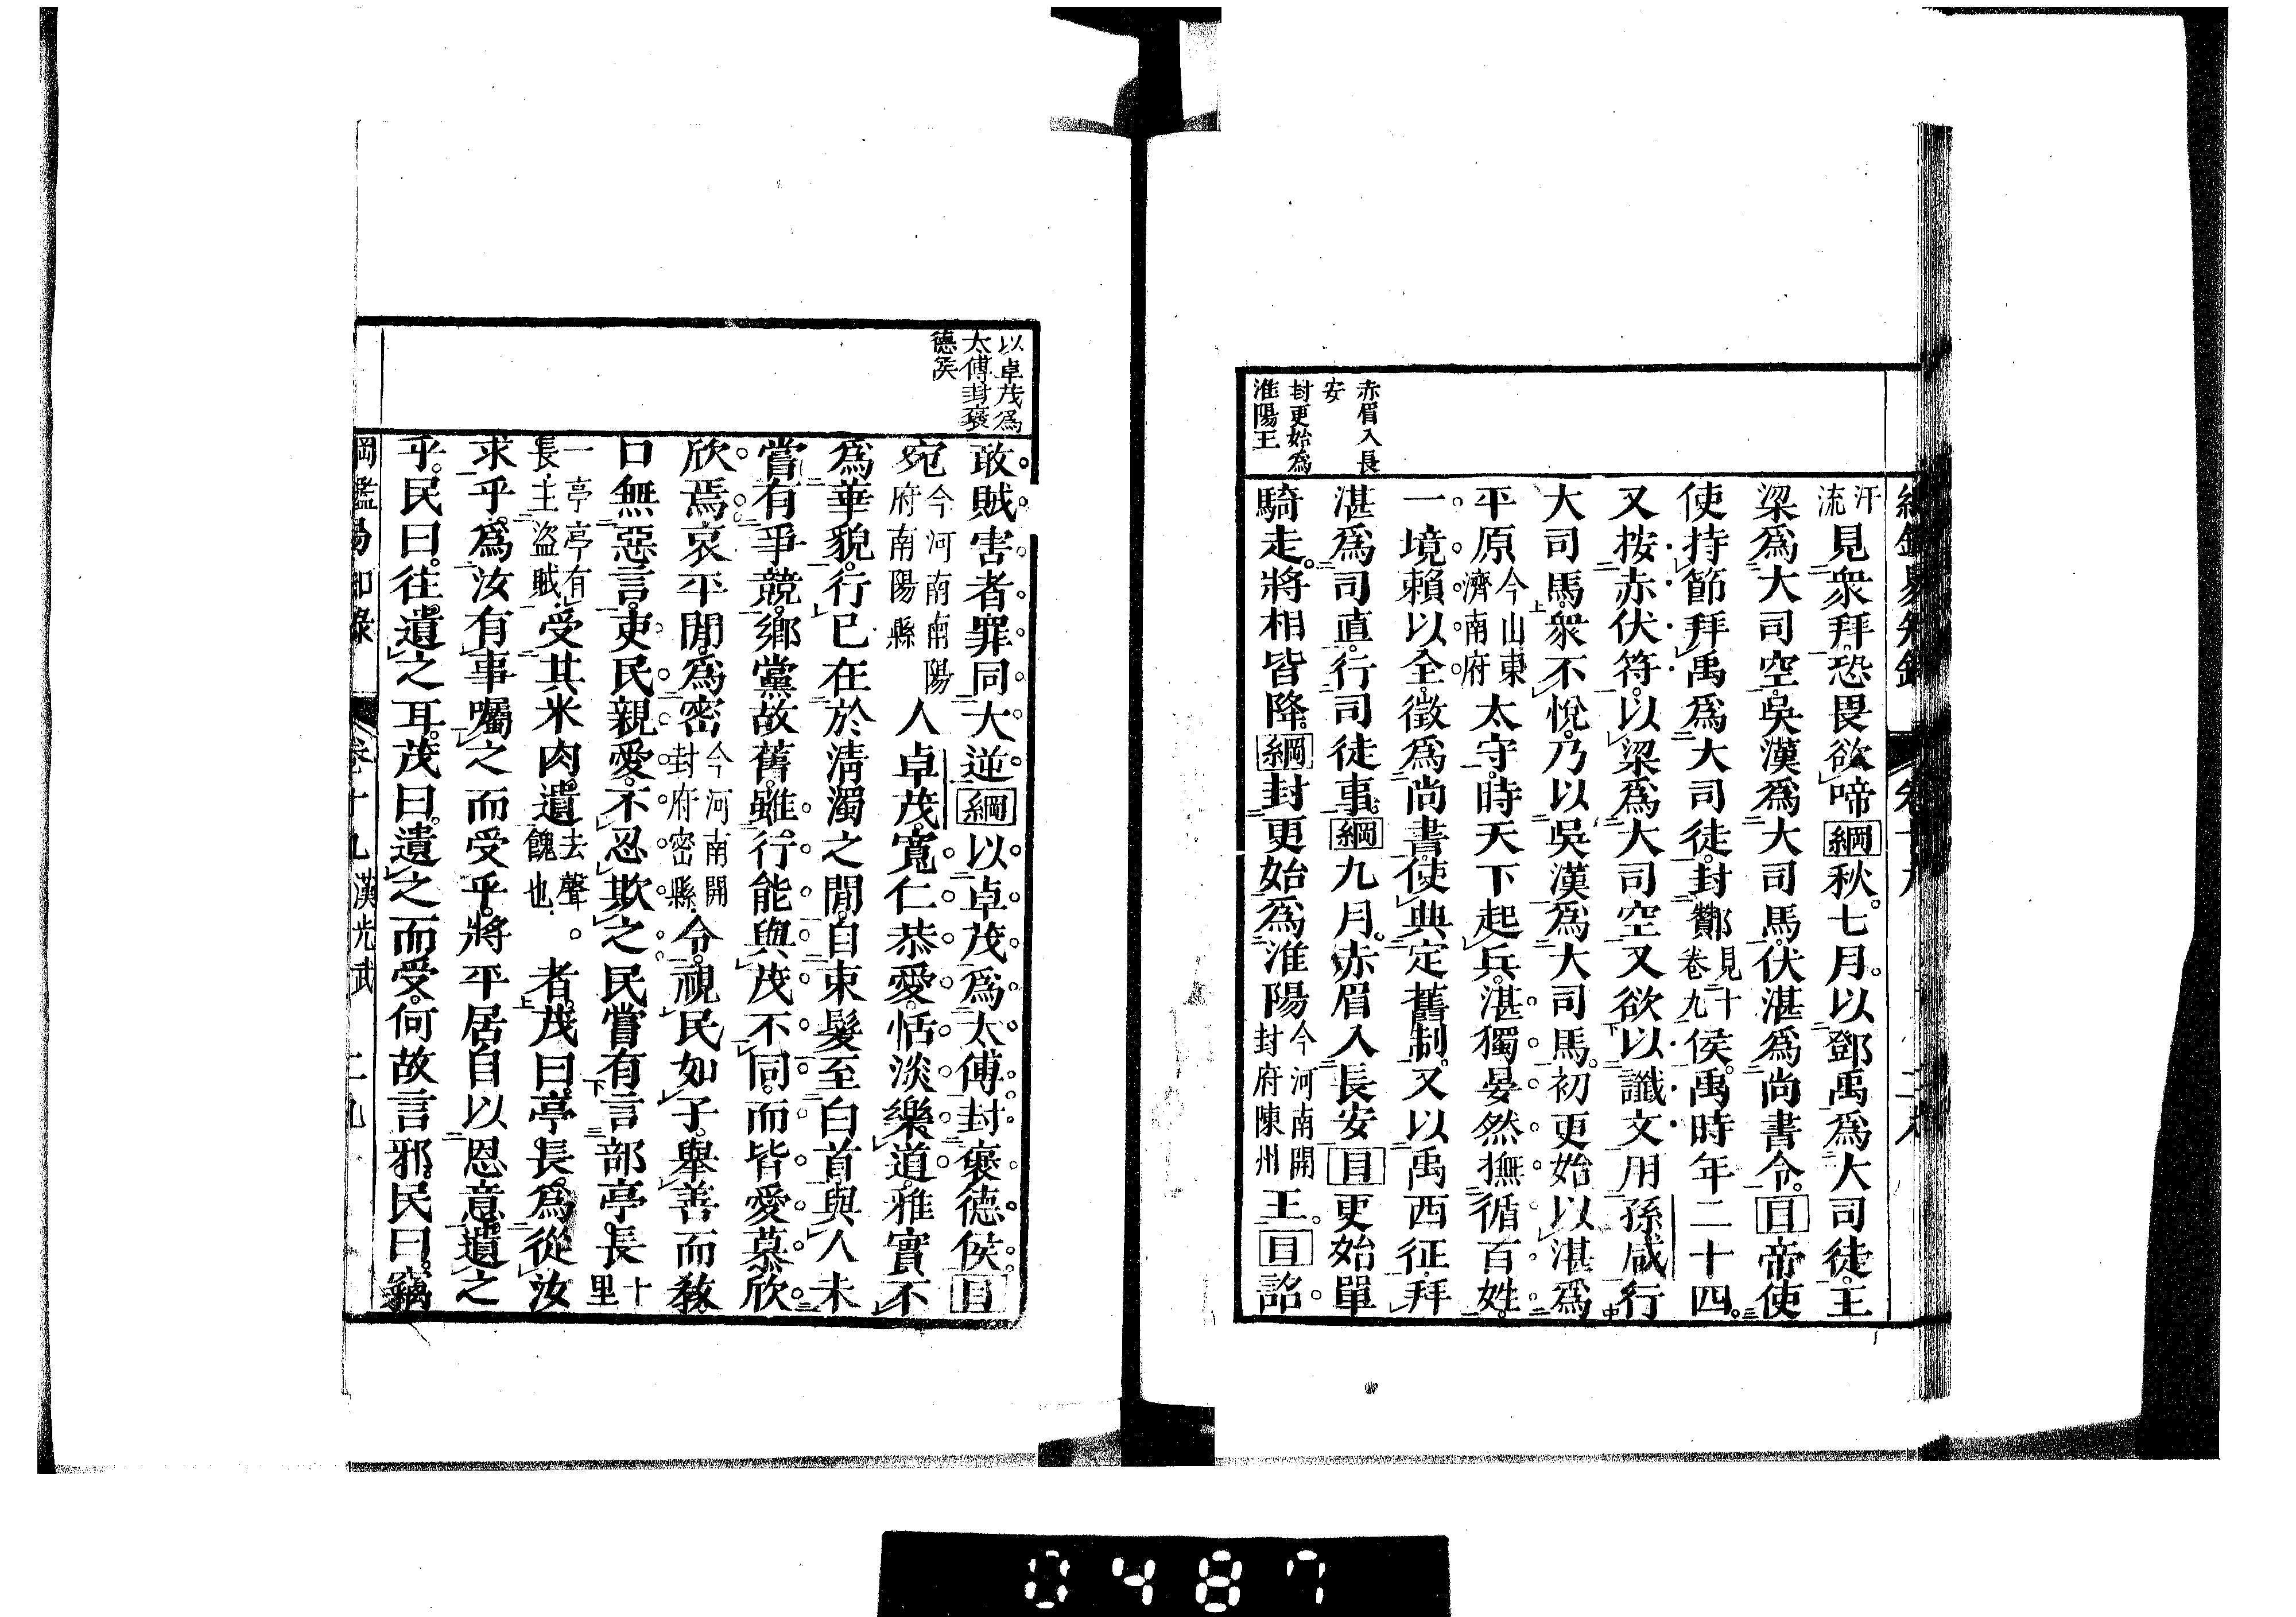 赤眉入長
安
封更始為
淮陽王
汗流見衆拜。恐畏欲啼綱秋。七月。以鄧禹爲大司徒。王
梁爲大司空。吳漢爲大司馬。伏湛爲尚書令。目帝使
使持節拜禹爲大司徒。封酇見十卷九侯。禹時年二十四。
又按赤伏符。以梁爲大司空。又欲以讖文用孫咸行
大司馬。衆不悅。乃以吳漢爲大司馬。初更始以湛爲
平原今山東濟南府太守。時天下起兵。湛獨晏然撫循百姓。
一境賴以全。徵爲尚書。使典定舊制。又以禹西征。拜
湛爲司直。行司徒事。綱九月。赤眉入長安目更始單
騎走。將相皆降。綱封更始爲淮陽今河南開封府陳州王。目詔。
以卓茂爲
太傅封襃
德矦
敢賊害者罪同大逆綱以卓茂爲太傅封襃德侯。目
宛今河南南陽府南陽縣人卓茂。寬仁恭愛。恬淡樂道。雅實不
爲華貌。行已在於淸濁之閒。自束髮至白首。與人未
嘗有爭競。鄉黨故舊。雖行能與茂不同。而皆愛慕欣
欣焉。哀平閒。爲密今河南開封府密縣令。視民如子。舉善而敎。
口無惡言。吏民親愛。不忍欺之民嘗有言部亭長十里
一亭亭有長主盜賊受其米肉。遺去聲餽也。者。茂曰。亭長。爲從汝
求乎。爲汝有事囑之而受乎。將平居自以恩意遺之
乎。民曰。往遺之耳。茂曰。遺之而受。何故言邪。民曰。竊
綱鑑易知錄 卷十九漢光武 二九